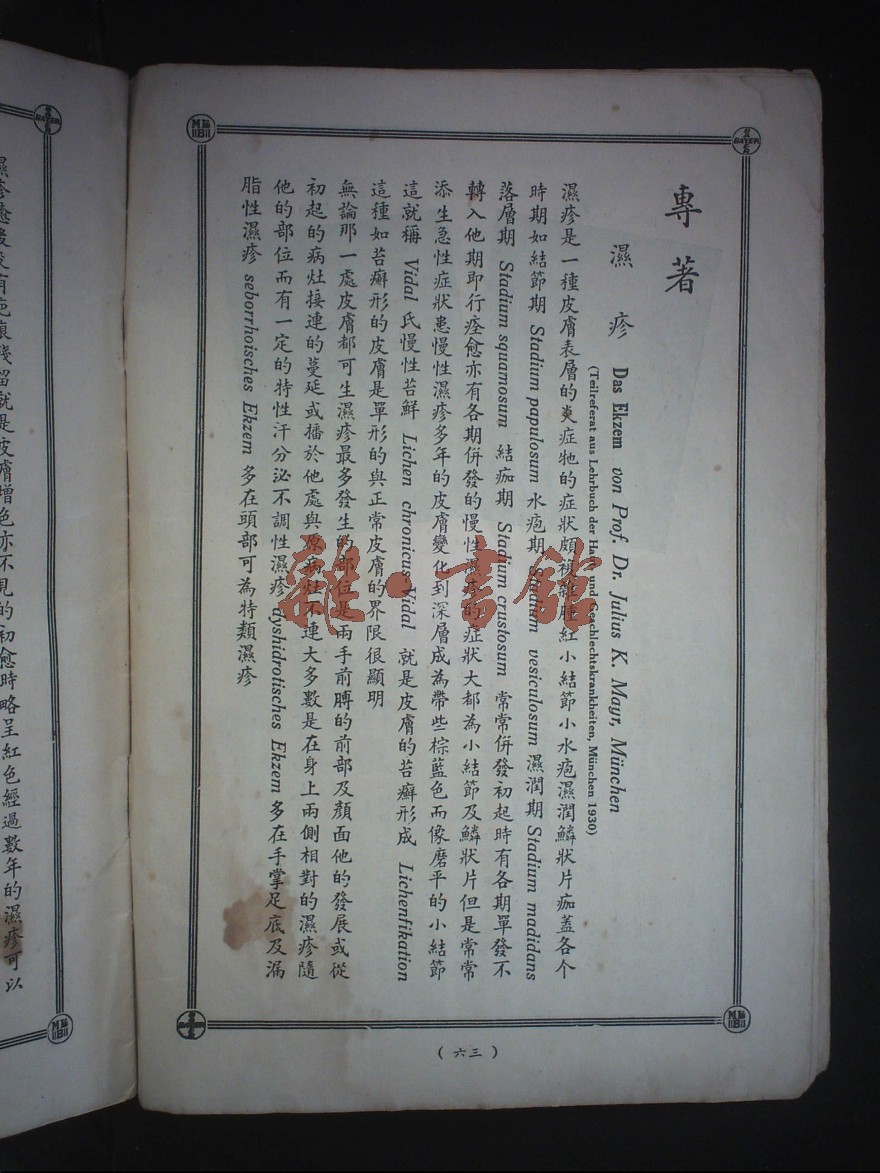 專著
濕疹 Das Ekzem von Prof. Dr. Julius K. Mayr, München
(Teilreferat aus Lehrbuch der Haut- und Geschlechtskrankheiten, München 1930)
濕疹是一種皮膚表層的炎症牠的症狀頗複雜腫紅小結節小水疱濕潤鱗狀片痂蓋各个
時期如結節期 Stadium papulosum 水疱期 Stadium vesiculosum 濕潤期 Stadium madidans
落層期 Stadium squamosum 結痂期 Stadium crustosum 常常併發初起時有各期單發不
轉入他期即行痊愈亦有各期併發的慢性濕疹的症狀大都為小結節及鱗狀片但是常常
添生急性症狀患慢性濕疹多年的皮膚變化到深層成為帶些棕藍色而像磨平的小結節
這就稱 Vidal 氏慢性苔鮮 Lichen chronicus Vidal 就是皮膚的苔癬形成 Lichenfikation
這種如苔癬形的皮膚是單形的與正常皮膚的界限很顯明
無論那一處皮膚都可生濕疹最多發生的部位是兩手前膊的前部及顏面他的發展或從
初起的病灶接連的蔓延或播於他處與原病灶不連大多數是在身上兩側相對的濕疹隨
他的部位而有一定的特性汗分泌不調性濕疹 dyshidrotisches Ekzem 多在手掌足底及漏
脂性濕疹 seborrhoisches Ekzem 多在頭部可為特類濕疹
(六三)
濕疹愈後沒有疤痕殘留就是皮膚增色亦不見的初愈時略呈紅色經過數年的濕疹可以
BAYER
BAYER
BAYER
雜·書館